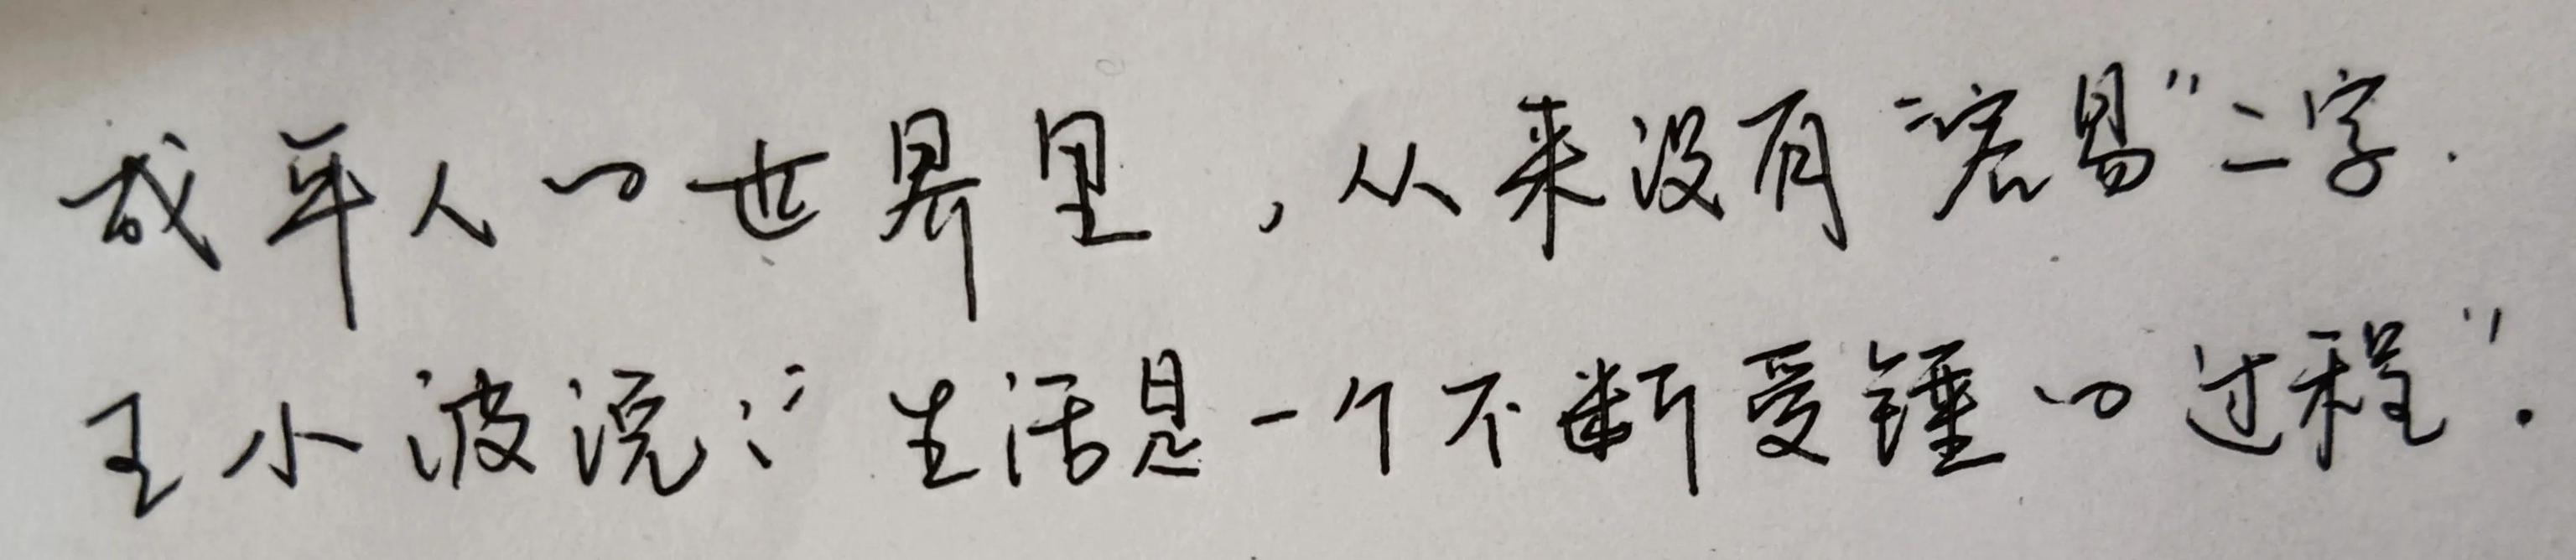 成年人的世界里，从来没有“容易”二字.
王小波说：“生活是一个不断受锤的过程”.